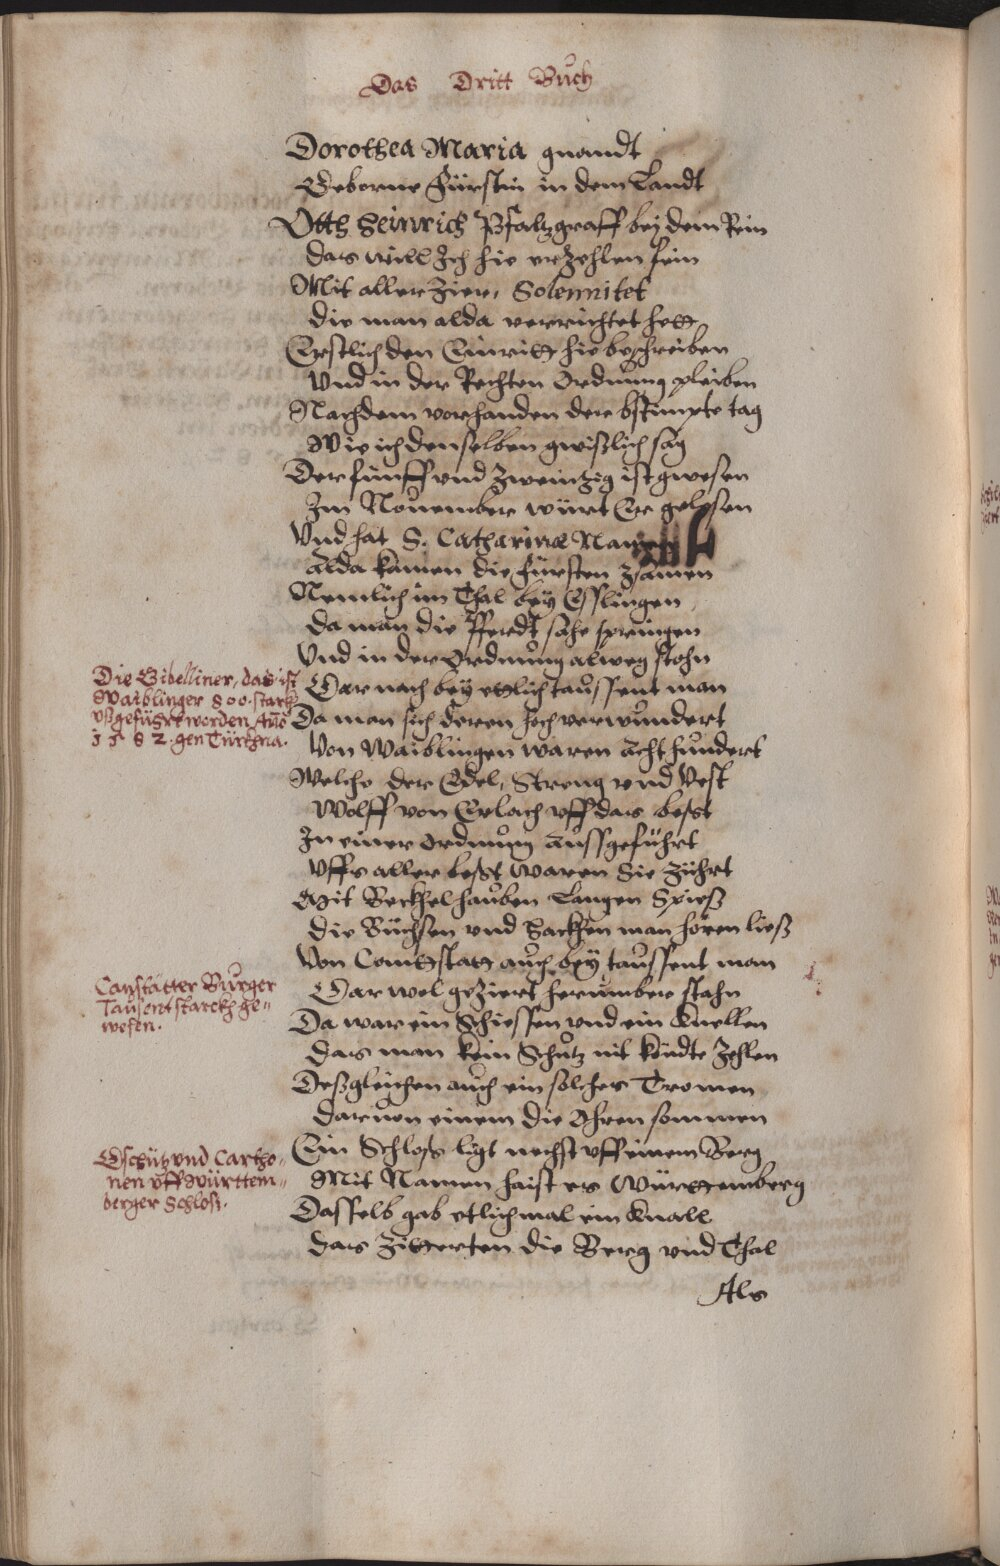 Das Dritt Buch
Dorothea Maria gnandt
Geborne Fürstin in dem Landt
Otth Heinrich Pfaltzgraff bej dem Rein
das will Ich hie erzehlen fein
Mit aller Zier, Solennitet
die man alda verrichtet hett
Erstlich den Einritt hie beschreiben
Vnd in der Rechten Ordnung pleiben
Nachdem vorhanden der bstimpte tag
Wie ich denselben gwißlich sag
Der fünff vnd zweintzig ist gwesen
Im Nouember würt Er gelesen
Vnd hat S. Catharinæ
alda kamen die Fürsten zsamen
Nemlich im Thal bey Esslingen
da man die Pferdt sahe springen
Vnd in der Ordnung alweg stohn
Gar nach bey ettlich taussent man
Da man sich deren hoch verwundert
Von Waiblingen waren Acht hundert
Welche der Edel, Streng vnd Vest
Wolff von Erlach vff das best
In einer Ordnung aussgeführt
Vffs aller best waren Sie Zührt
Mit Beckhelhauben Langen Spieß
die Büchsen vnd Hackhen man hören ließ
Von Contstatt auch bey taussent man
Gar wol geziert herumber stahn
Da war ein Schiessen vnd ein Knellen
das man kein Schutz nit köndte Zehlen
Deßgleichen auch ein solches Tromen
daruon einem die Ohren sommen
Ein Schloss ligt nechst vff einem Berg
Mit Namen haist es Württemberg
Dasselb gab etlich mal ein Knall
das Zitterten die Berg vnd Thal
Als
Die Gibelliner, das ist
Waiblinger 800. starck
vßgefüert worden Año
1582. gen Türckna.
Canstatter Burger
Tausent starckh ge=
wesen.
Gschütz vnd Cartho=
nen vff Württem=
berger Schloß.